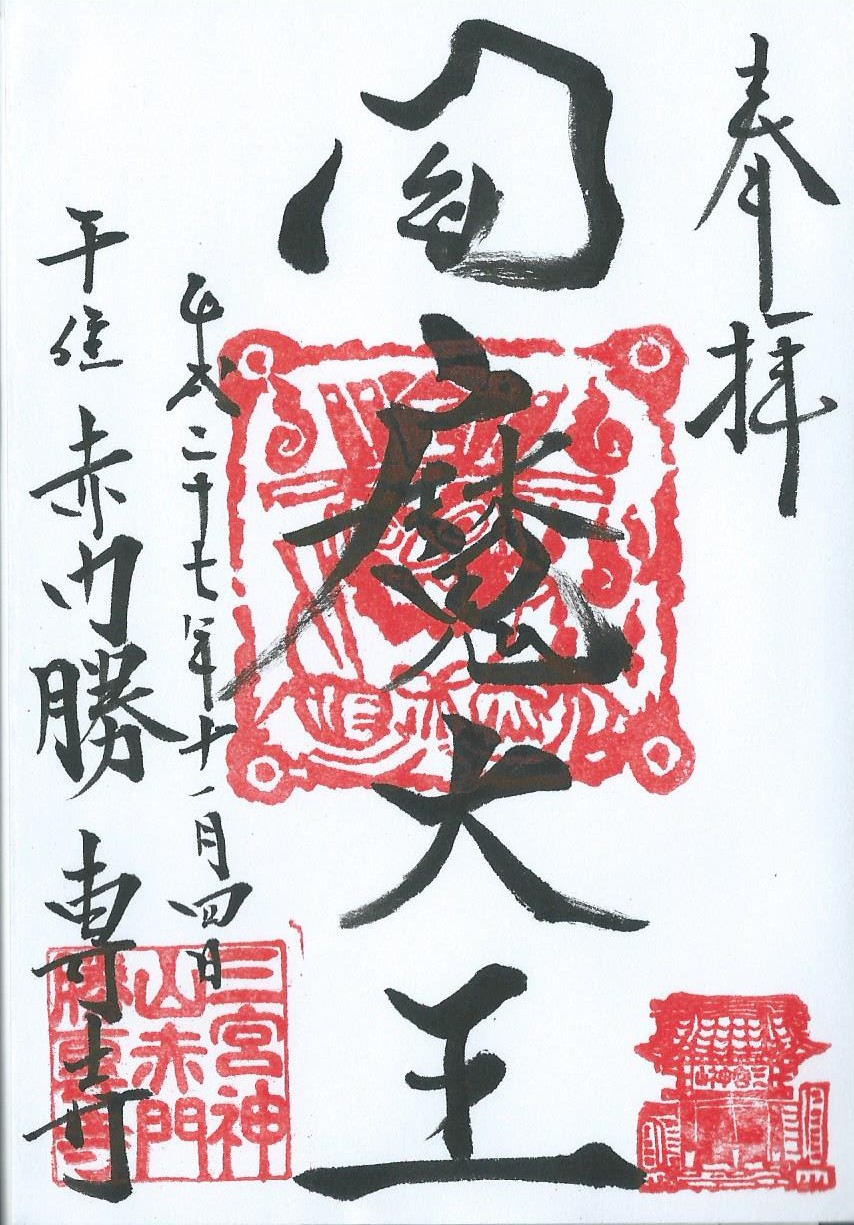 奉拝
閻魔大王
平成二十七年十一月四日
千住 赤門 勝専寺
三宮神
山赤門
勝専寺
三宮神山